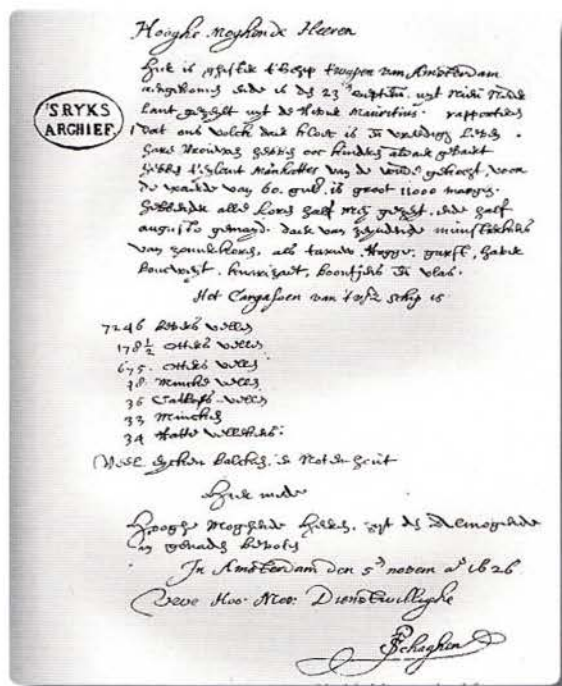 Hooghe Moghende Heeren
Hier is ghister t'Schip t'wapen van Amsterdam
aengekomen ende is den 23en septem. uyt Nieu Neder
lant gezeylt uyt de rivier Mauritius. rapporteert
'SRYKS
ARCHIEF
dat ons volck daer kloec is en vreedigh leven.
hare vrouwen hebben ooc kinders aldaer gebaert
hebben t'eylant Manhattes van de wilde gekocht, voor
de waerde van 60. guld. is groot 11000 morgen.
hebbende alle koren half mey gezeyt, ende half
augusto gemayd. daer van zeynden munsterkens
van zomerkoren, als tarruw, Rogge, garst, haver
boucweyt, knarizaet, boontjes en vlas.
Het Cargasoen van t'vsz schip is
7246 bevers vellen
178½ otters vellen
675. otters vellen
48. Mincke vellen
36 Catloes vellen
33 Mincken
34 Ratte vellekens.
Veel eycken balcken, en Noten hout
Hier mede
Hooghe Moghende Heeren, zyt den Almogende
in genade bevolen
In Amsterdam den 5en novem ao 1626
Uwe Hoo: Moo: Dienstwillighe
P Schaghen